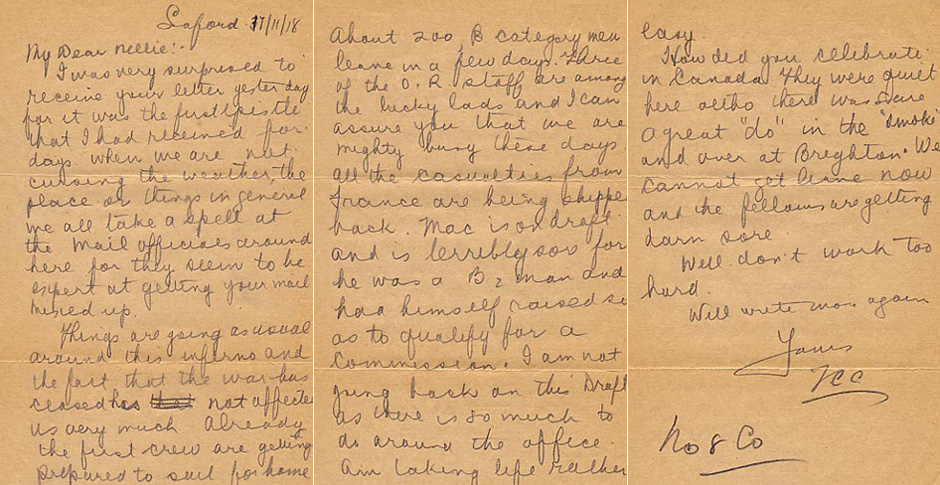 Seaford 17/11/18
My Dear Nellie:-
I was very surprised to
receive your letter yesterday
for it was the first epistle
that I had received for
days. When we are not
cursing the weather, the
place or things in general
we all take a spell at
the mail officials around
here for they seem to be
expert at getting your mail
mixed up.
Things are going as usual
around this inferno and
the fact that the war has
ceased has not affected
us very much Already
the first crew are getting
prepared to sail for home
About 200 B category men
leave in a few days. Three
of the O.R. staff are among
the lucky lads and I can
assure you that we are
mighty busy these days.
all the casualties from
France are being shippe
back. Mac is on draft
and is terribly sore for
he was a B2 man and
had himself raised so
as to qualify for a
Commission. I am not
going back on this Draft
as there is so much to
do around the office.
Am taking life rather
easy.
How did you celebrate
in Canada. They were quiet
here altho there was sure
a great "do" in the "smoke"
and over at Breghton. We
cannot get leave now
and the fellows are getting
darn sore.
Well don't work too
hard.
Will write more again
Yours
No 8 Co